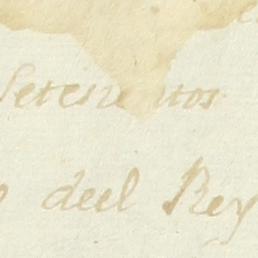 Setesientos
deel Rey